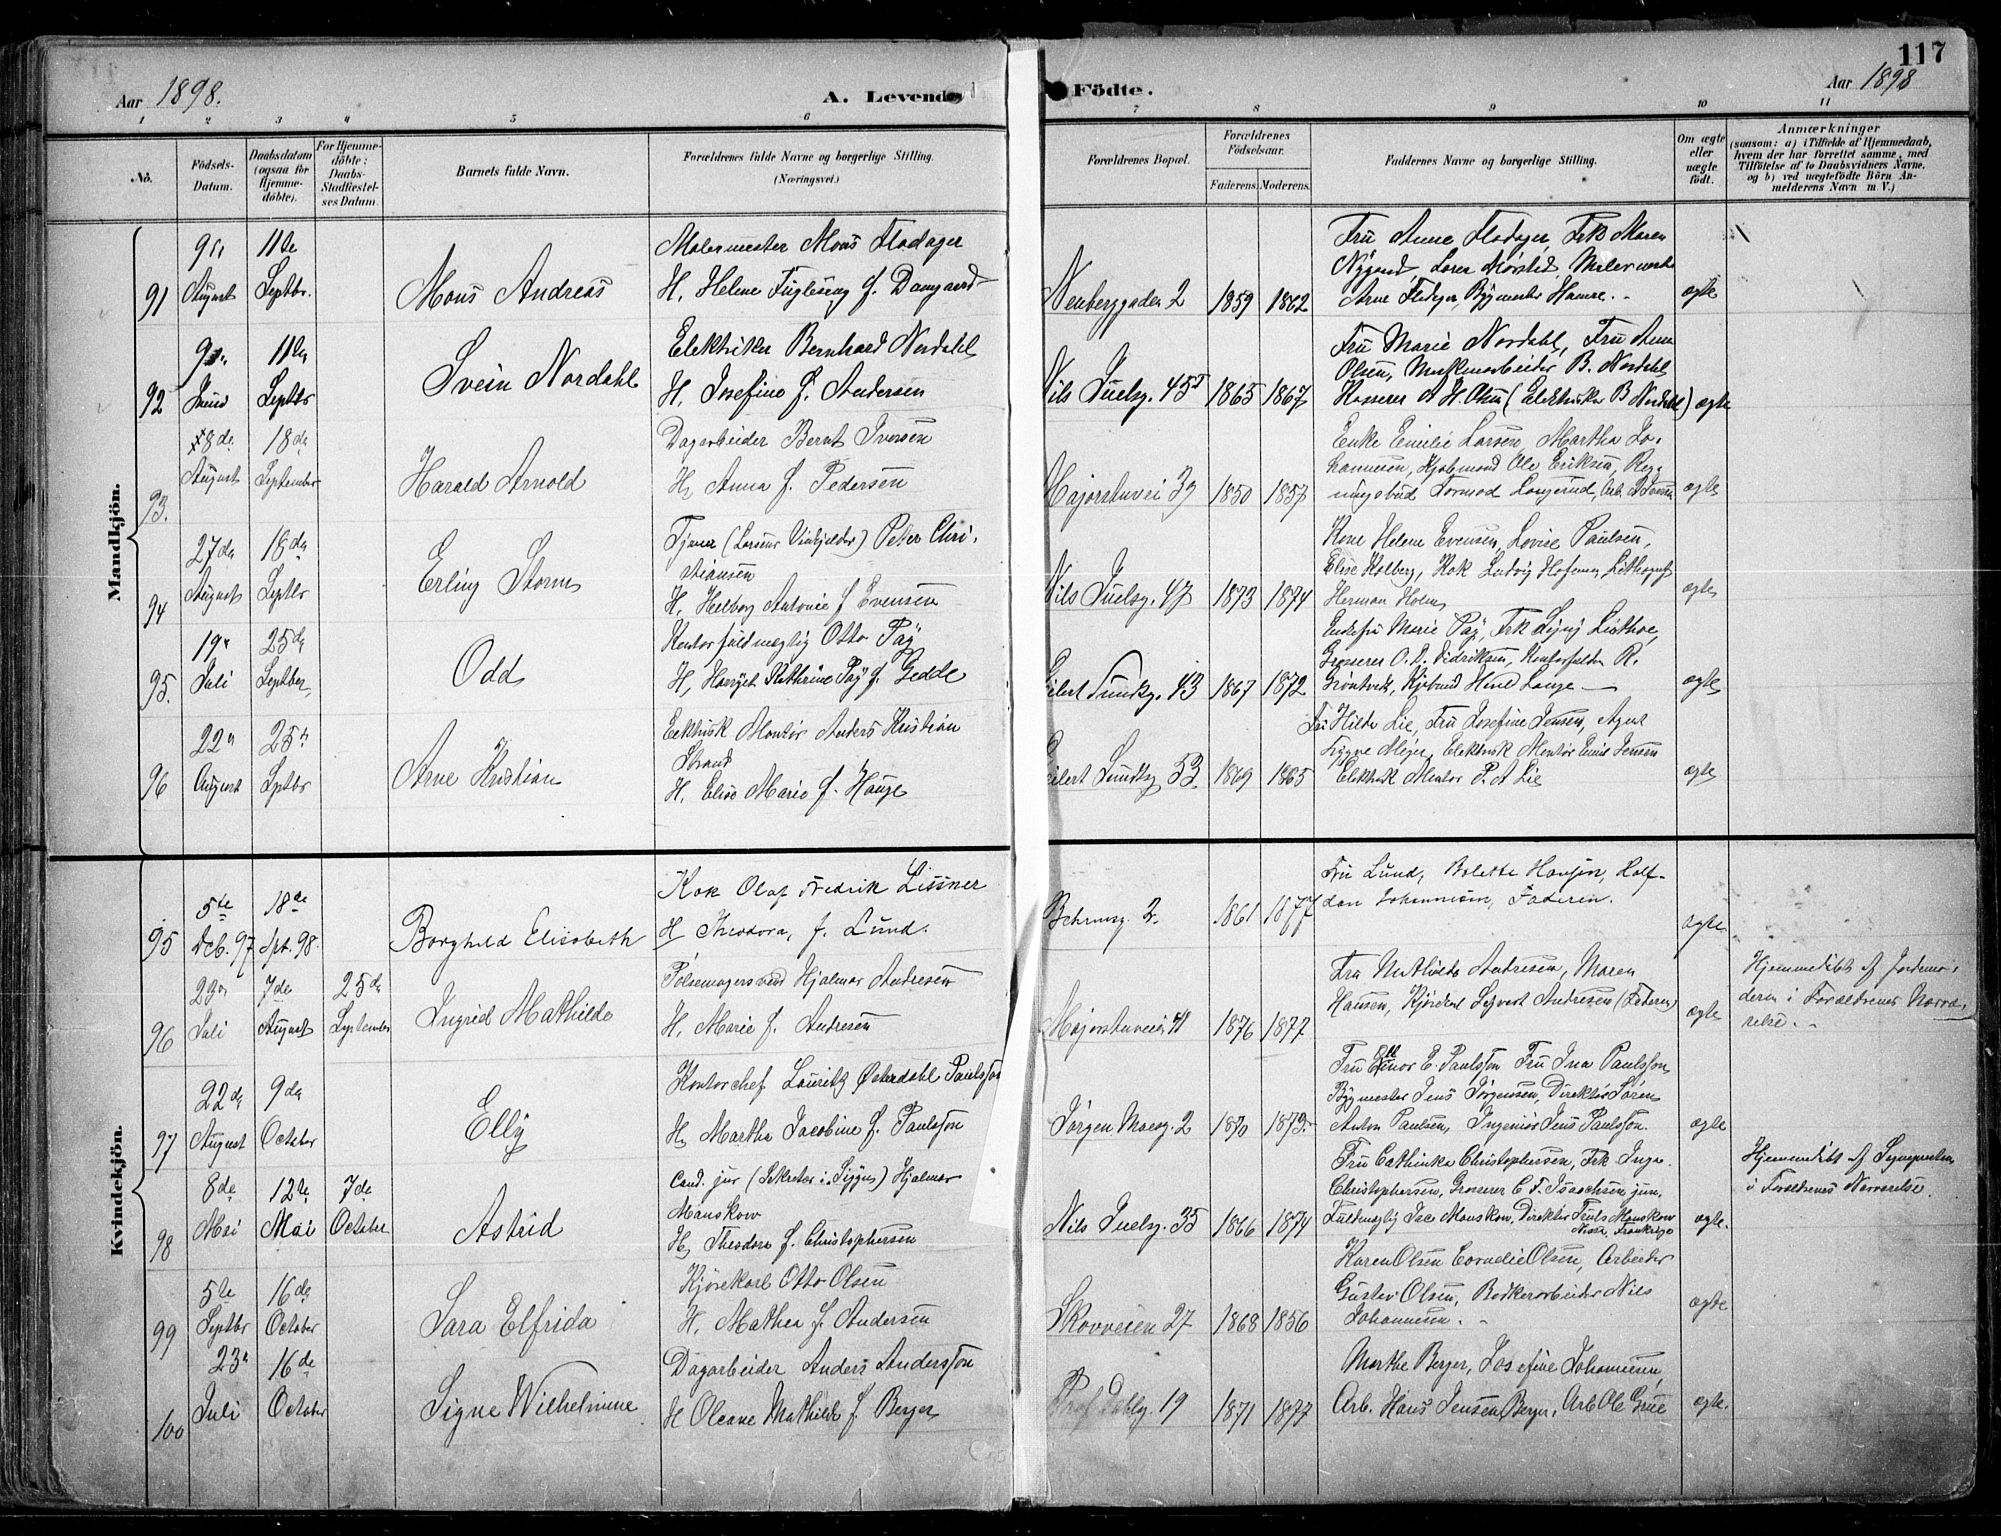 117
Aar 1898.
A. Levende
Födte.
Aar 1898
1 2 3 4 5 6 7 8 9 10 11
No.
Födsels-Datum.
Daabsdatum (ogsaa for Hjemme-döbte).
For Hjemme-döbte: Daabs-Stadfæstel-ses Datum.
Barnets fulde Navn.
Forældrenes fulde Navne og borgerlige Stilling. (Næringsvei.)
Forældrenes Bopæl.
Forældrenes Födselsaar.
Faderens. Moderens.
Faddernes Navne og borgerlige Stilling.
Om ægte eller uægte födt.
Anmærkninger
(saasom: a) i Tilfælde af Hjemmedaab,
hvem der har forrettet samme, med
Tilföielse af to Daabsvidners Navne,
og b) ved uægtefödte Börn An-
melderens Navn m V.)
Mandkjön.
91
August
11te Septbr.
Mons Andreas
Malermester Mons Flodager
H. Helene Fuglesang f. Damgaard
2
1859 1862
Fru Anne Flodager, Frk Maren
Nygaard,
Arne Flodager, Bygmester Hamre.
ægte
92
Juni
11te Septbr
Svein Nordahl
Elektriker Bernhard Nordahl
H. Josefine f. Andersen
Nils Juelsg. 45
1865 1867
Fru Marie Nordahl, Fru Anna
Olsen, Maskinarbeider B. Nordahl
Kasserer A H. Olsen (Elektriker B Nordahl)
ægte
93.
8de August
18de September
Harald Arnold
Dagarbeider Bernt Iversen
H. Anna f. Pedersen
Majorstuvei 39
1850 1857
Enke Emilie Larsen, Martha Jo-
hannesen, Kjøbmand Ole Eriksen, Reg-
ningsbud Tormod
ægte
94
27de August
18de Septbr
Erling Storm
Tjener (Larsens Vinkjelder) Peter Chri-
stiansen
H. Helborg Antonie f Evensen
Nils Juelsg. 47
1873 1874
Kone Helene Evensen, Lovise Paulsen,
Elise Kolberg, Kok Ludvig Lithograf
Herman Holm
ægte
95.
19 Juli
25de Septber
Odd
Kontorfuldmægtig Otto Paÿ
H. Kathrine Paÿ f. Gedde
Eilert Sundtsg. 43
1867 1872
Enkefru Marie Paÿ, Frk
Grosserer O. D. Didriksen, R.
Lange
ægte
96
22 August
25 Septbr
Arne Kristian
Elektrisk Montør Anders Kristian
Strand
H. Elise Marie f. Hauge
Eilert Sundtsg 53.
1869 1865
Fru Hilda Lie, Fru Josefine Jensen, Agent
Meyer, Elektrisk Montør Emil Jensen
Elektrisk Montør P. A Lie
ægte
Kvindekjön.
95
5te Dcb. 97
18de Spt. 98.
Borghild Elisabeth
Kok Olaf Fredrik Lissner
H Theodora, f. Lund.
Behrensg. 2.
1861 1877
Fru Lund, Bolette Hansen, Half-
dan Johannesen, Faderen.
ægte
96
23 Juli
7de August
25de September
Ingrid Mathilde
Pølsemagersvend Hjalmar Andresen
H. Marie f. Andresen
Majorstuveien 41
1876 1877
Fru Mathilde Andresen, Maren
Hansen, Sigvert Andresen (Faderen)
ægte
Hjemmedöbt af Jordemo-
deren i Forældrenes Nærvæ-
relse. -
97
22de August
9de October
Elly
Kontorchef Lauritz Østerdahl Paulsson
H. Martha Jacobine f. Paulsson
Jørgen Moesg. 2
1870 1873
Fru Ellinor E. Paulsson Fru Ina Paulsson,
Bygmester Jens Jørgensen, Direktør Søren
Anton Paulsen, Ingeniør Jens Paulsson.
ægte
98
8de Mai
12te Mai
7de October
Astrid
Cand. jur (Sekretær i Sygns) Hjalmar
Manskow
H. Theodora f. Christophersen
Nils Juelsg. 35
1866 1874
Fru Cathinka Christophersen, Frk Inga
Christophersen, Grosserer C. F. Isaachsen jun.
Fuldmægtig Jac Manskow, Direktør Truls Manskow
Nissa, Frankrige
ægte.
Hjemmedöbt af Sogneprælten
i Forældrenes Nærværelse.
99
5te Septbr
16de October
Sara Elfrida
Kjørekarl Otto Olsen
H. Mathea f. Andersen
Skovveien 27
1868 1856
Karen Olsen Cornelie Olsen, Arbeider
Gustav Olsen, Bødkerarbeider Nils
Johannesen.
ægte
100
23 Juli
16de October
Signe Wilhelmine
Dagarbeider Anders Andersson
H Oleane Mathilde f. Berger
Prof Dahlsg. 19
1871 1877
Marthe Berger, Josefine Johannesen,
Arb. Hans Jensen Berger, Arb Ole Grue
ægte.